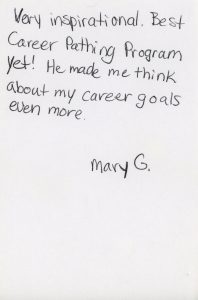 Very inspirational. Best
Career Pathing Program
Yet! He made me think
about my career goals
even more.
Mary G.